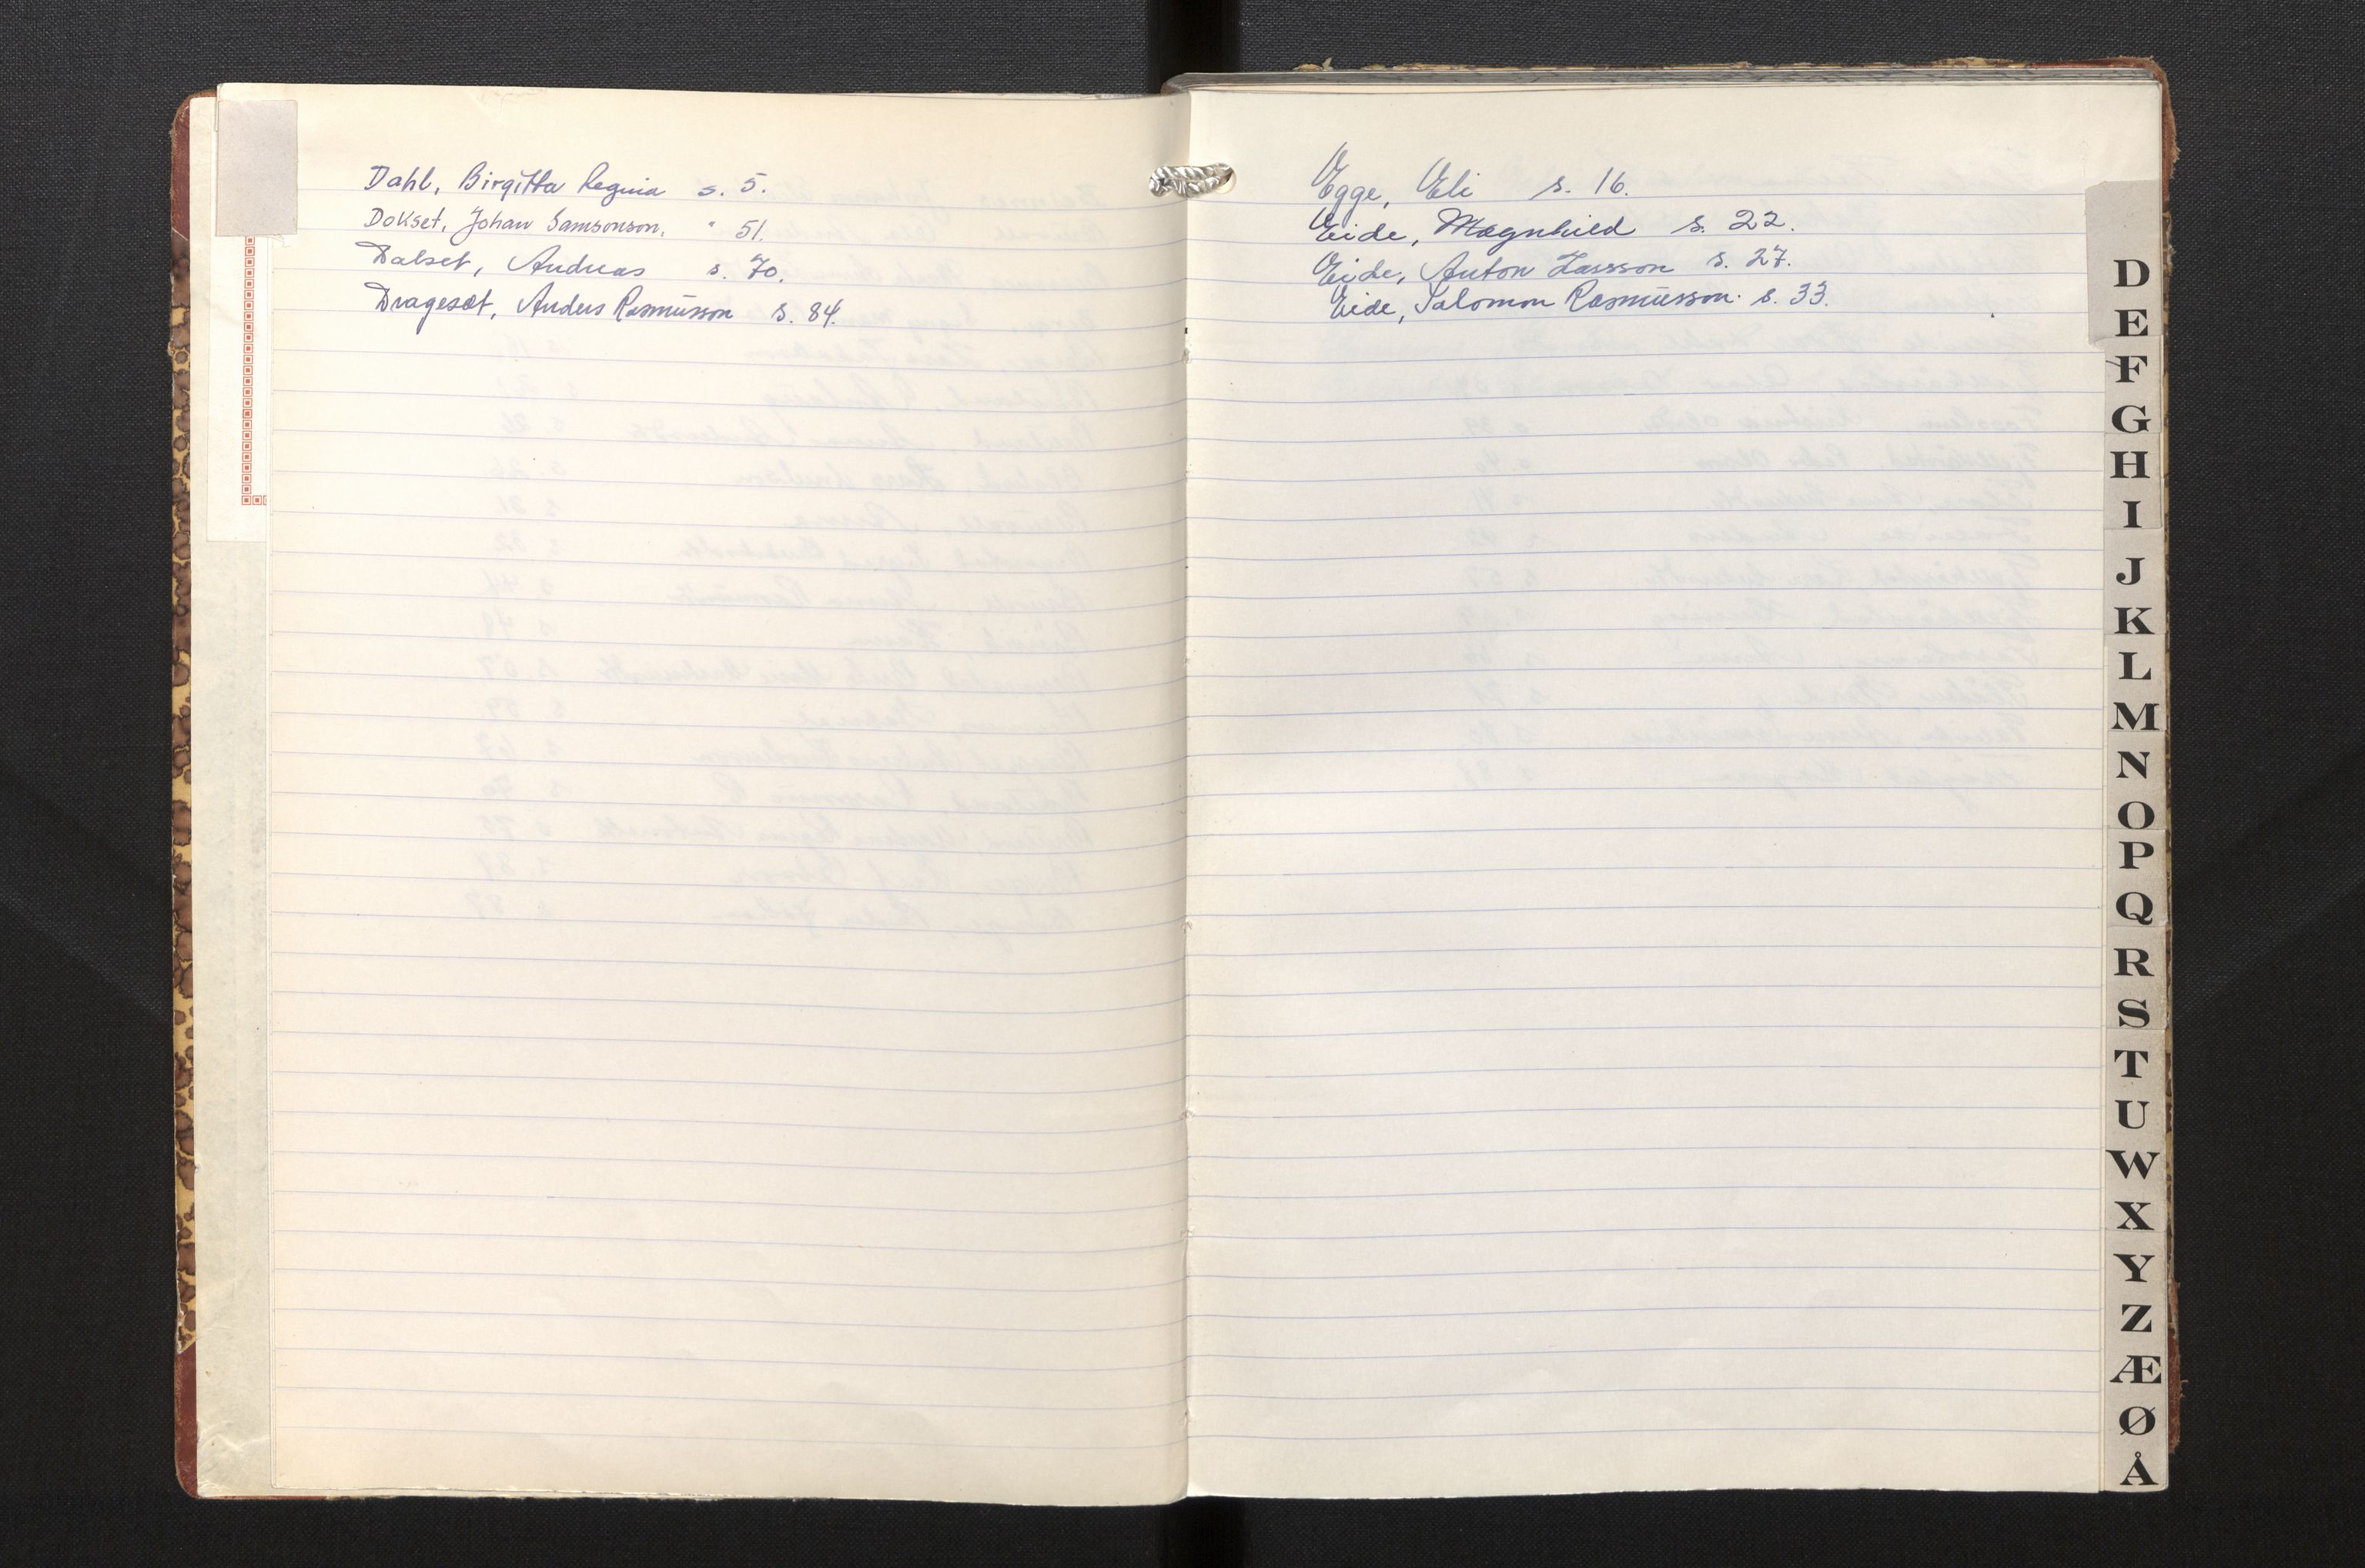 Dahl, Birgitta Regina s. 5.
Dokset, Johan Samsonson, " 51.
Dalset, Andreas s. 70.
Drageset, Anders Rasmusson s. 84.
Egge, Eli s. 16.
Eide, Magnhild s. 22.
Eide, Anton Larsson s. 27.
Eide, Salomon Rasmusson. s. 33.
D
E
F
G
H
I
J
K
L
M
N
O
P
Q
R
S
T
U
W
X
Y
Z
Æ
Ø
Å